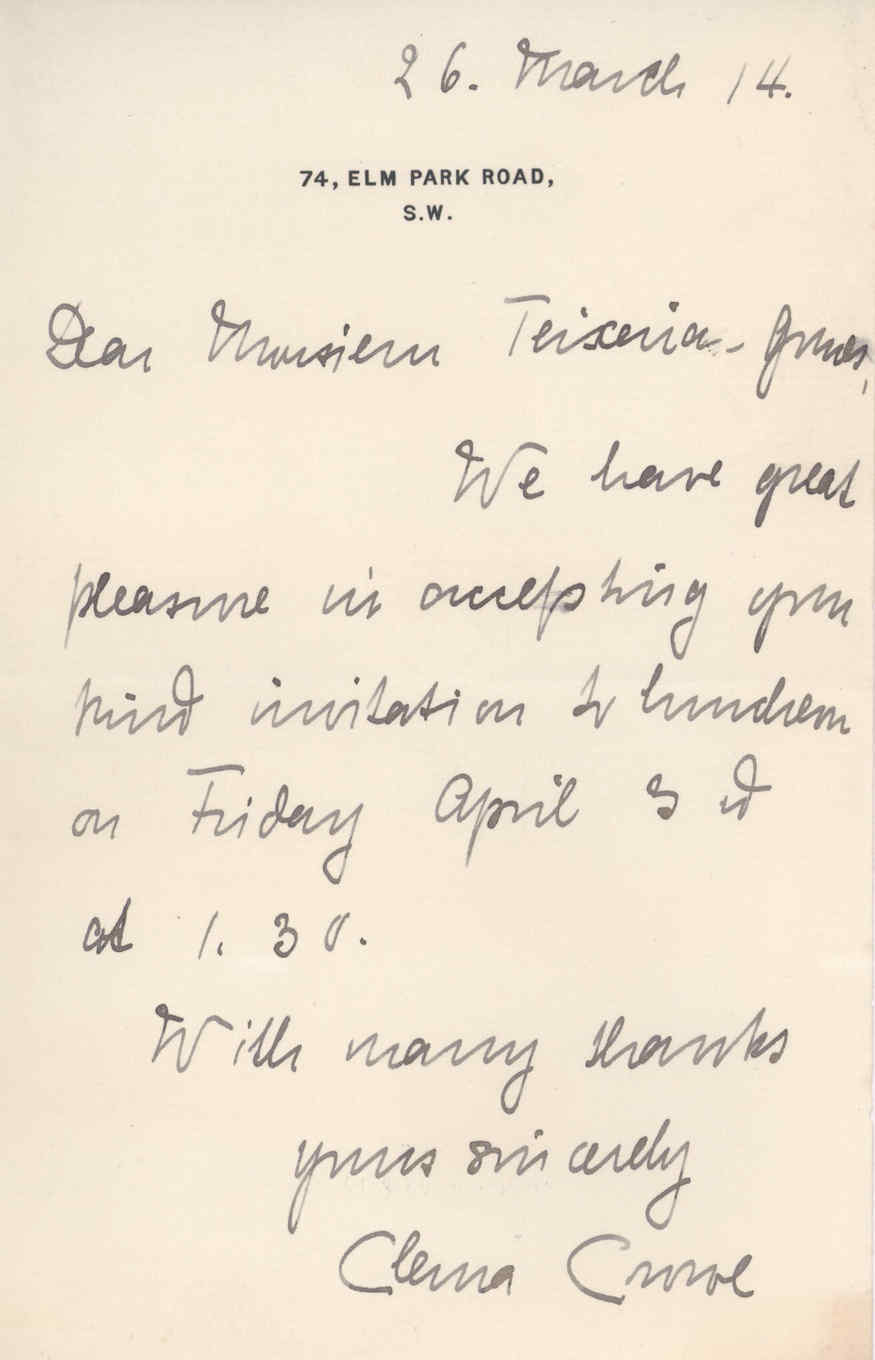 26. March 14.
74, ELM PARK ROAD,
S.W.
Dear Monsieur Teixeira-Gomes,
We have great
pleasure in accepting your
kind invitation to luncheon
on Friday April 3rd
at 1.30.
With many thanks
yours sincerely
Clema Crowe